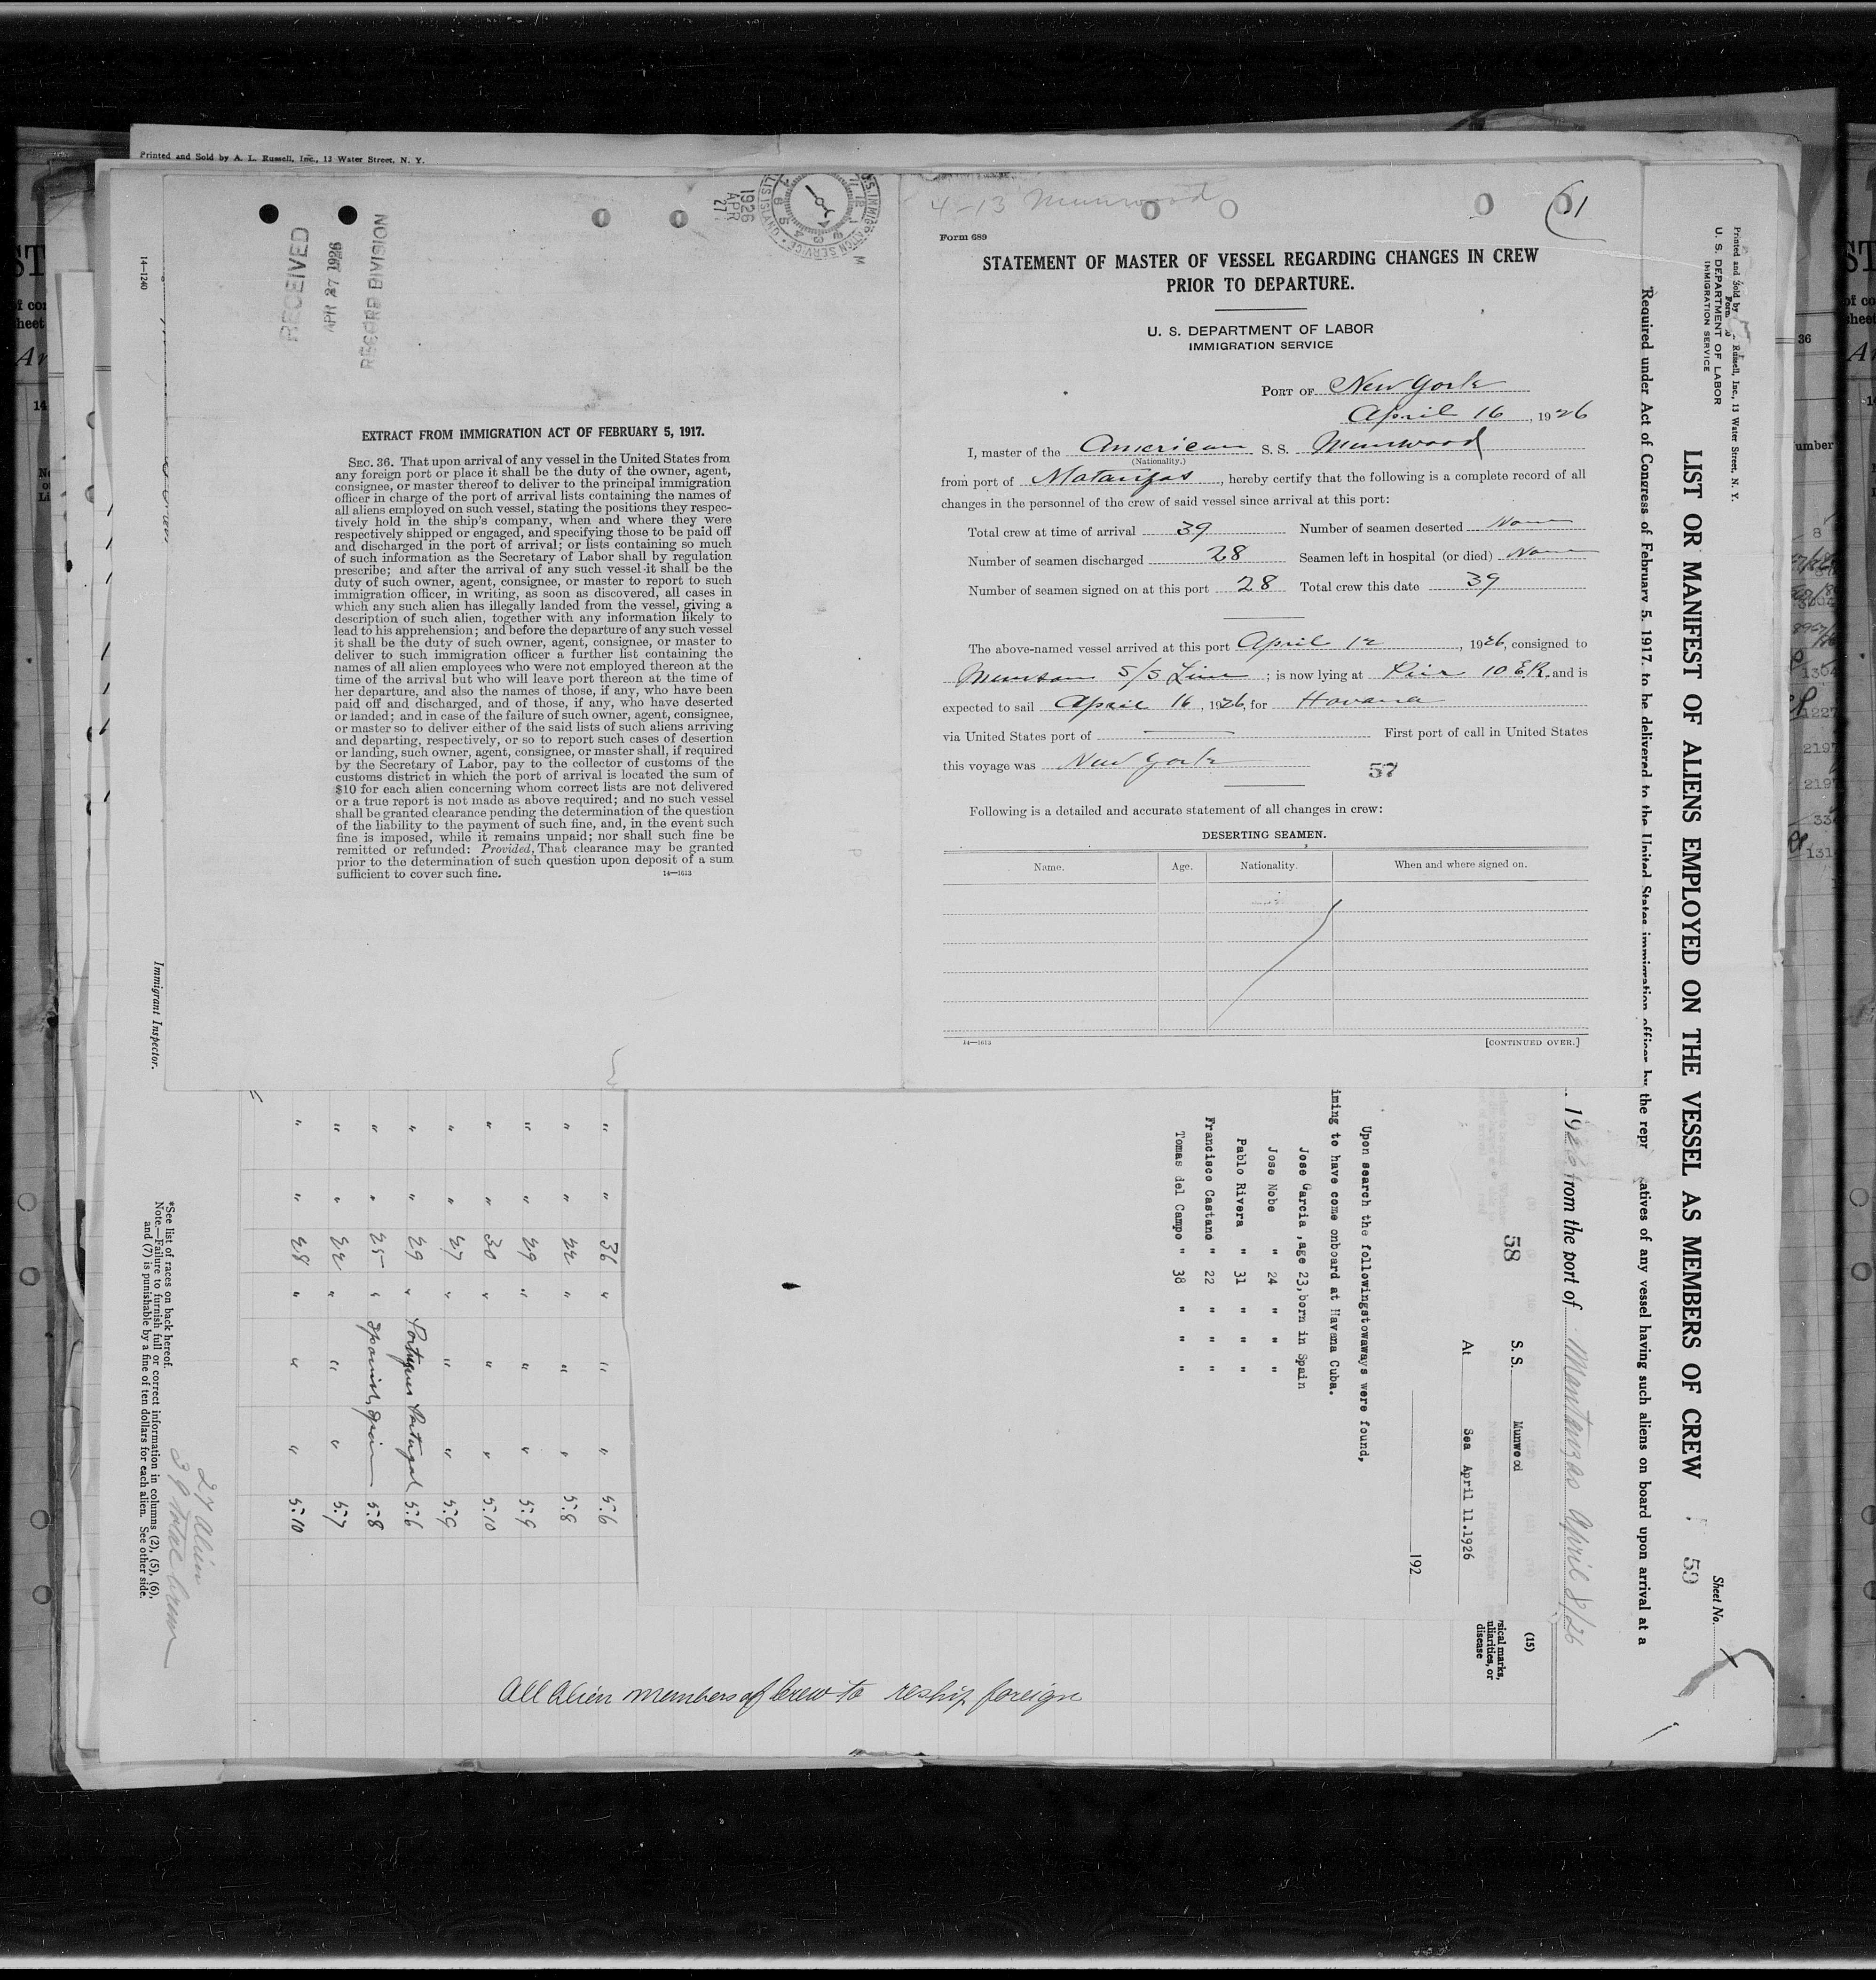 Printed and Sold by A. L. Russell, Inc., 13 Water Street, N. Y.
14—1240
RECEIVED
APR 27 1926
RECORD DIVISION
1926
APR
27
U.S. IMMIGRATION SERVICE
EXTRACT FROM IMMIGRATION ACT OF FEBRUARY 5, 1917.
SEC. 36. That upon arrival of any vessel in the United States from
any foreign port or place it shall be the duty of the owner, agent,
consignee, or master thereof to deliver to the principal immigration
officer in charge of the port of arrival lists containing the names of
all aliens employed on such vessel, stating the positions they respec-
tively hold in the ship's company, when and where they were
respectively shipped or engaged, and specifying those to be paid off
and discharged in the port of arrival; or lists containing so much
of such information as the Secretary of Labor shall by regulation
prescribe; and after the arrival of any such vessel it shall be the
duty of such owner, agent, consignee, or master to report to such
immigration officer, in writing, as soon as discovered, all cases in
which any such alien has illegally landed from the vessel, giving a
description of such alien, together with any information likely to
lead to his apprehension; and before the departure of any such vessel
it shall be the duty of such owner, agent, consignee, or master to
deliver to such immigration officer a further list containing the
names of all alien employees who were not employed thereon at the
time of the arrival but who will leave port thereon at the time of
her departure, and also the names of those, if any, who have been
paid off and discharged, and of those, if any, who have deserted
or landed; and in case of the failure of such owner, agent, consignee,
or master so to deliver either of the said lists of such aliens arriving
and departing, respectively, or so to report such cases of desertion
or landing, such owner, agent, consignee, or master shall, if required
by the Secretary of Labor, pay to the collector of customs of the
customs district in which the port of arrival is located the sum of
$10 for each alien concerning whom correct lists are not delivered
or a true report is not made as above required; and no such vessel
shall be granted clearance pending the determination of the question
of the liability to the payment of such fine, and, in the event such
fine is imposed, while it remains unpaid; nor shall such fine be
remitted or refunded: Provided, That clearance may be granted
prior to the determination of such question upon deposit of a sum
sufficient to cover such fine.
14—1613
4-13 Munwood
61
Form 689
STATEMENT OF MASTER OF VESSEL REGARDING CHANGES IN CREW
PRIOR TO DEPARTURE.
U. S. DEPARTMENT OF LABOR
IMMIGRATION SERVICE
PORT OF New York
April 16, 1926
I, master of the American S. S. Munwood
(Nationality.)
from port of Matanzas, hereby certify that the following is a complete record of all
changes in the personnel of the crew of said vessel since arrival at this port:
Total crew at time of arrival 39 Number of seamen deserted None
Number of seamen discharged 28 Seamen left in hospital (or died) None
Number of seamen signed on at this port 28 Total crew this date 39
The above-named vessel arrived at this port April 12, 1926, consigned to
Munson S/S Line; is now lying at Pier 10 E.R. and is
expected to sail April 16, 1926, for Havana
via United States port of — First port of call in United States
this voyage was New York
57
Following is a detailed and accurate statement of all changes in crew:
DESERTING SEAMEN.
Name. Age. Nationality. When and where signed on.
14—1613
[CONTINUED OVER.]
Printed and Sold by Russell, Inc., 13 Water Street, N. Y.
Form
U. S. DEPARTMENT OF LABOR
IMMIGRATION SERVICE
Sheet No.
LIST OR MANIFEST OF ALIENS EMPLOYED ON THE VESSEL AS MEMBERS OF CREW
59
Required under Act of Congress of February 5, 1917, to be delivered to the United States immigration officer by the repr atives of any vessel having such aliens on board upon arrival at a
1926 from the port of Mantanzas April 8/26
(15)
sical marks,
uliarities, or
disease
58
S. S. Munwood
At Sea April 11.1926
192
Upon search the followingstowaways were found,
iming to have come onboard at Havana Cuba.
Jose Garcia ,age 23,born in Spain
Jose Nobe " 24 " " "
Pablo Rivera " 31 " " "
Francisco Castano " 22 " " "
Tomas del Campo " 38 " " "
" " 36 " " " 5.6
" " 22 " " " 5.8
" " 29 " " " 5.9
" " 30 " " " 5.10
" " 27 " " " 5.9
" " 29 " Portugues Portugal 5.6
" " 25 " Spanish Spain 5.8
" " 22 " " " 5.7
" " 28 " " " 5.10
27 Alien
39 Total Crew
*See list of races on back hereof.
Note.—Failure to furnish full or correct information in columns (2), (5), (6),
and (7) is punishable by a fine of ten dollars for each alien. See other side.
Immigrant Inspector.
All Alien members of Crew to reship foreign